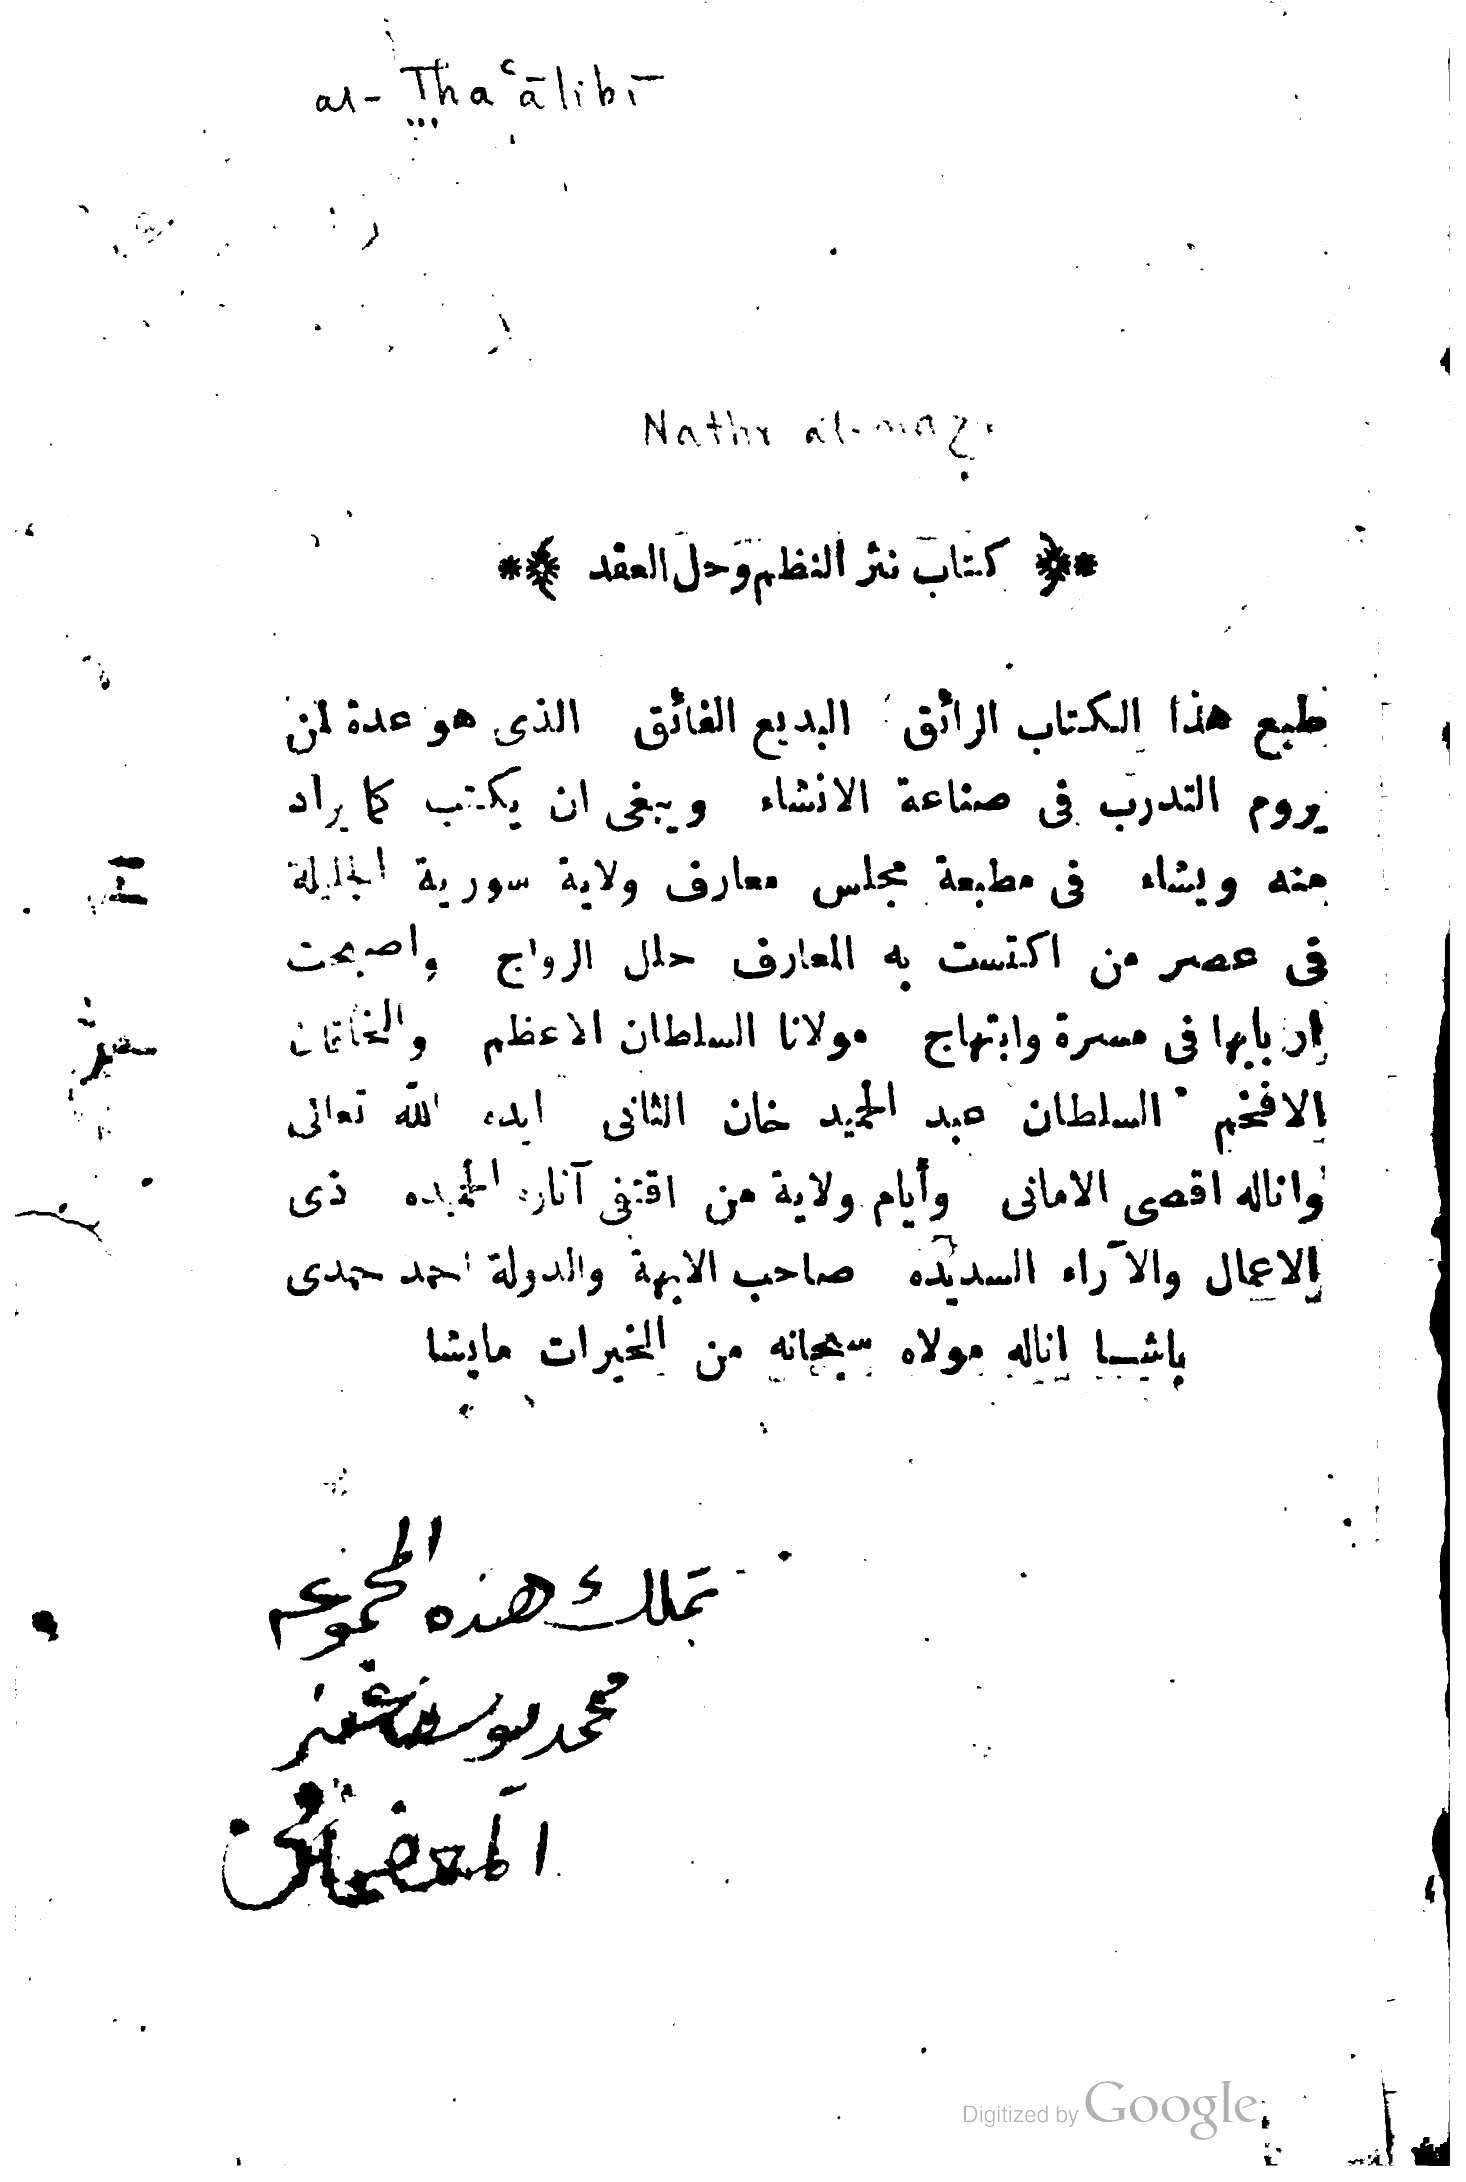 al-Thaʿālibī
Nathr al-naẓ
كتاب نثر النظم وحل العقد
طبع هذا الكتاب الرائق البديع الفائق الذى هو عدة لمن
يروم التدرب فى صناعة الانشاء ويبغى ان يكتب كما يراد
منه ويشاء فى مطبعة مجلس معارف ولاية سورية الجليلة
فى عصر من اكتست به المعارف حلل الرواج واصبحت
اربابها فى مسرة وابتهاج مولانا السلطان الاعظم والخاقان
الافخم السلطان عبد الحميد خان الثانى ايده الله تعالى
واناله اقصى الامانى وأيام ولاية من اقتفى آثاره الحميده ذى
الاعمال والآراء السديده صاحب الابهة والدولة احمد حمدى
باشا اناله مولاه سبحانه من الخيرات مايشا
تملك هذه المجموعه
محمد يوسف
Digitized by Google